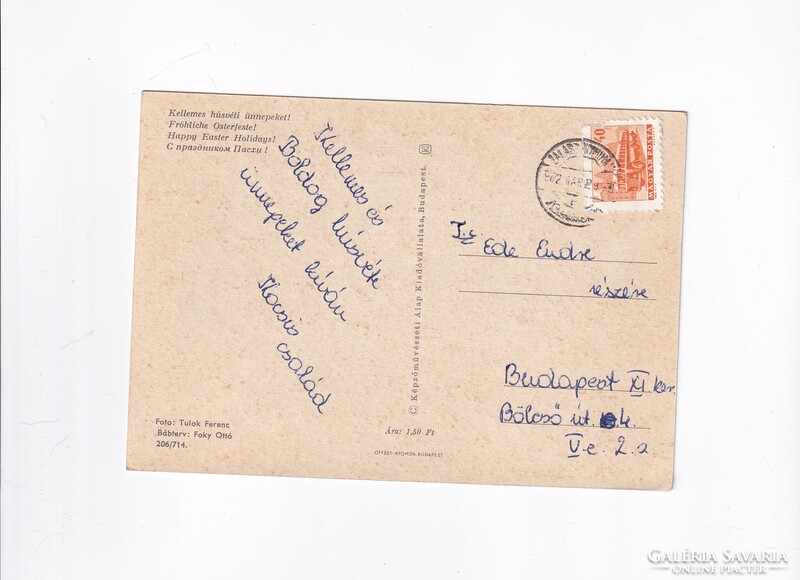 Kellemes húsvéti ünnepeket!
Fröhliche Osterfeste!
Happy Easter Holidays!
С праздником Пасхи!
Kellemes és
Boldog húsvéti
ünnepeket kíván
Kocsis
család
Foto: Tulok Ferenc
Bábterv: Foky Ottó
206/714.
© Képzőművészeti Alap Kiadóvállalata, Budapest.
Ára: 1,50 Ft
OFFSET-NYOMDA BUDAPEST
40
MAGYAR POSTA
Ede Endre
részére
Budapest XI ker.
Bölcső út 4.
V. e. 2. a
GALÉRIA SAVARIA
ONLINE PIACTÉR